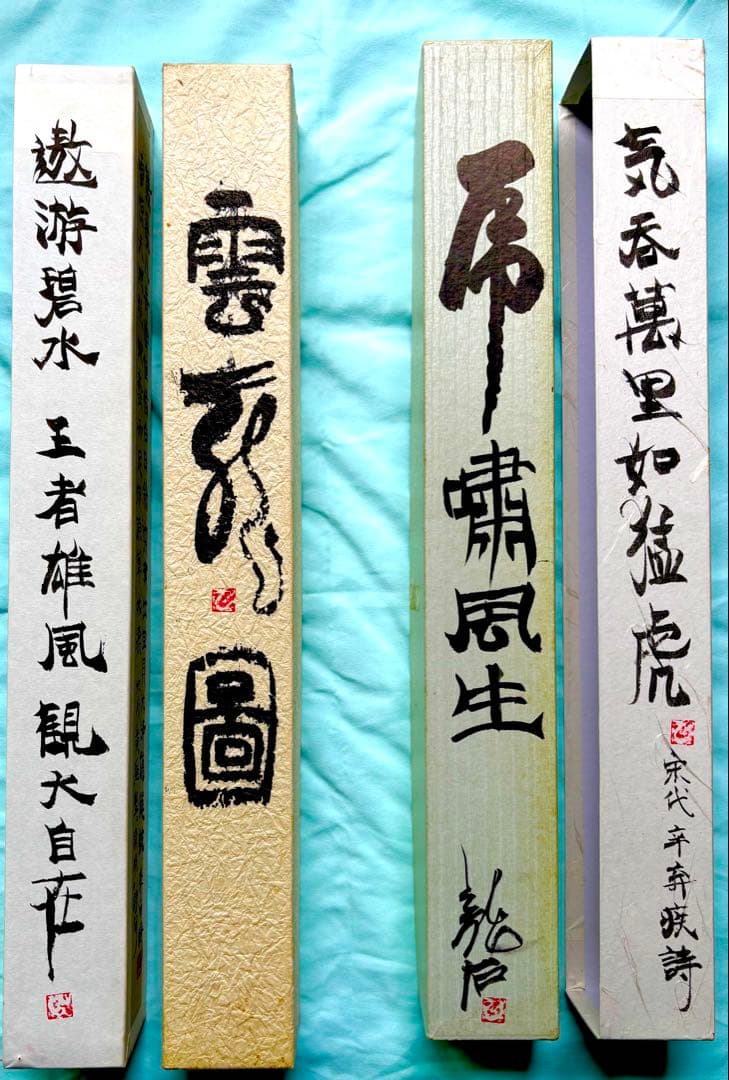 遨游碧水 王者雄風 觀大自在
雲龍圖
虎嘯風生
気吞萬里如猛虎
宋代 辛弃疾詩